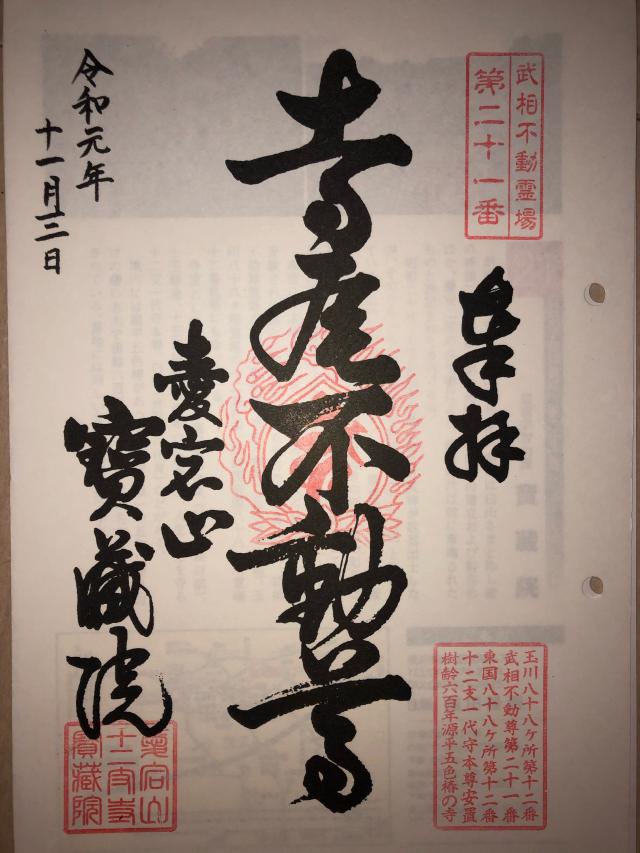 武相不動霊場
第二十一番
奉拝
不動尊
愛宕山
寳蔵院
令和元年
十一月三日
玉川八十八ヶ所第十二番
武相不動尊第二十一番
東国八十八ヶ所第十二番
十二支一代守本尊安置
樹齢六百年源平五色椿の寺
愛宕山
寳蔵院